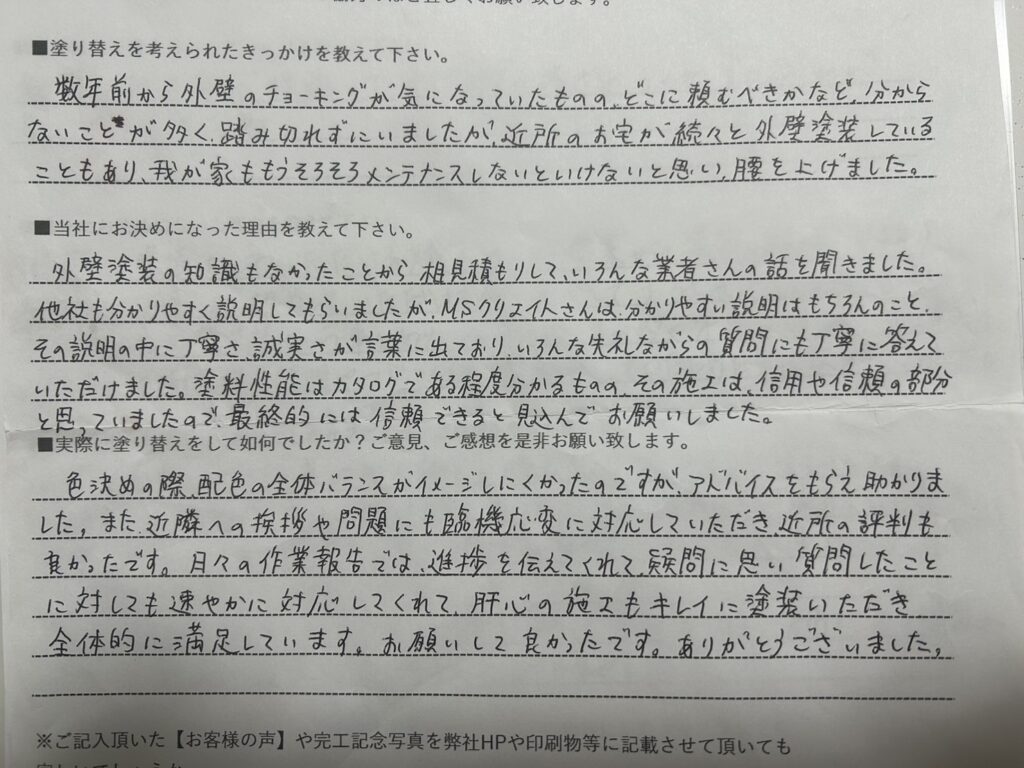 ■塗り替えを考えられたきっかけを教えて下さい。
数年前から外壁のチョーキングが気になっていたものの、どこに頼むべきかなど、分から
ないことが多く、踏み切れずにいましたが、近所のお宅が続々と外壁塗装している
こともあり、我が家ももうそろそろメンテナンスしないといけないと思い、腰を上げました。
■当社にお決めになった理由を教えて下さい。
外壁塗装の知識もなかったことから相見積もりして、いろんな業者さんの話を聞きました。
他社も分かりやすく説明してもらいましたが、MSクリエイトさんは、分かりやすい説明はもちろんのこと、
その説明の中に丁寧さ、誠実さが言葉に出ており、いろんな失礼ながらの質問にも丁寧に答えて
いただけました。塗料性能はカタログである程度分かるものの、その施工は、信用や信頼の部分
と思っていましたので、最終的には信頼できると見込んでお願いしました。
■実際に塗り替えをして如何でしたか？ご意見、ご感想を是非お願い致します。
色決めの際、配色の全体バランスがイメージしにくかったのですが、アドバイスをもらえ助かりま
した。また、近隣への挨拶や問題にも臨機応変に対応していただき、近所の評判も
良かったです。日々の作業報告では、進捗を伝えてくれて、疑問に思い質問したこと
に対しても速やかに対応してくれて、肝心の施工もキレイに塗装いただき
全体的に満足しています。お願いして良かったです。ありがとうございました。
※ご記入頂いた【お客様の声】や完工記念写真を弊社HPや印刷物等に記載させて頂いても